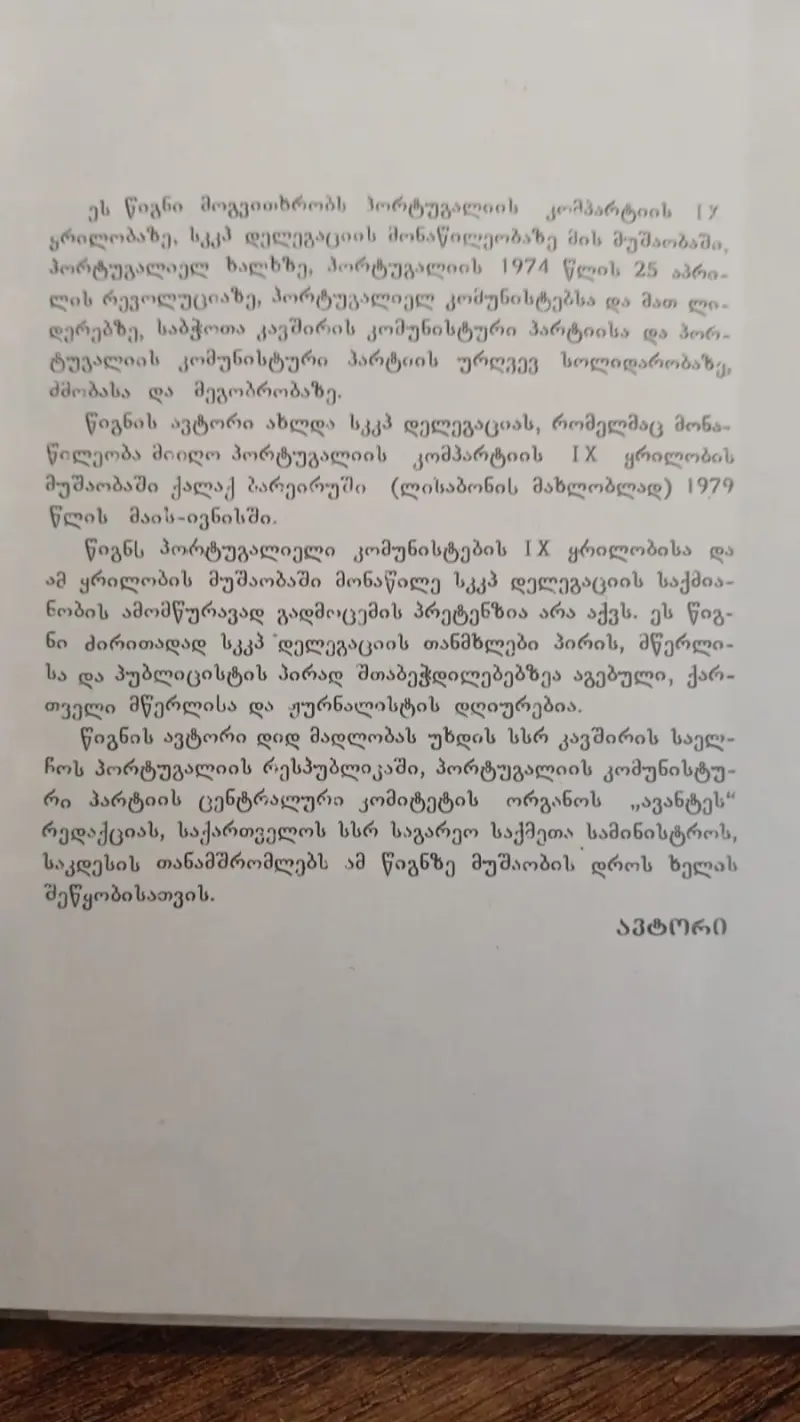 ეს წიგნი მოგვითხრობს პორტუგალიის კომპარტიის IX
ყრილობაზე, სკკპ დელეგაციის მონაწილეობაზე მის მუშაობაში,
პორტუგალიელ ხალხზე, პორტუგალიის 1974 წლის 25 აპრი-
ლის რევოლუციაზე, პორტუგალიელ კომუნისტებსა და მათ ლი-
დერებზე, საბჭოთა კავშირის კომუნისტური პარტიისა და პორ-
ტუგალიის კომუნისტური პარტიის ურღვევ სოლიდარობაზე,
ძმობასა და მეგობრობაზე.
წიგნის ავტორი ახლდა სკკპ დელეგაციას, რომელმაც მონა-
წილეობა მიიღო პორტუგალიის კომპარტიის IX ყრილობის
მუშაობაში ქალაქ ბარეირუში (ლისაბონის მახლობლად) 1979
წლის მაის-ივნისში.
წიგნს პორტუგალიელი კომუნისტების IX ყრილობისა და
ამ ყრილობის მუშაობაში მონაწილე სკკპ დელეგაციის საქმია-
ნობის ამომწურავად გადმოცემის პრეტენზია არა აქვს. ეს წიგ-
ნი ძირითადად სკკპ დელეგაციის თანმხლები პირის, მწერლი-
სა და პუბლიცისტის პირად შთაბეჭდილებებზეა აგებული, ქარ-
თველი მწერლისა და ჟურნალისტის დღიურებია.
წიგნის ავტორი დიდ მადლობას უხდის სსრ კავშირის საელ-
ჩოს პორტუგალიის რესპუბლიკაში, პორტუგალიის კომუნისტუ-
რი პარტიის ცენტრალური კომიტეტის ორგანოს „ავანტეს“
რედაქციას, საქართველოს სსრ საგარეო საქმეთა სამინისტროს,
საკდესის თანამშრომლებს ამ წიგნზე მუშაობის დროს ხელის
შეწყობისათვის.
ავტორი